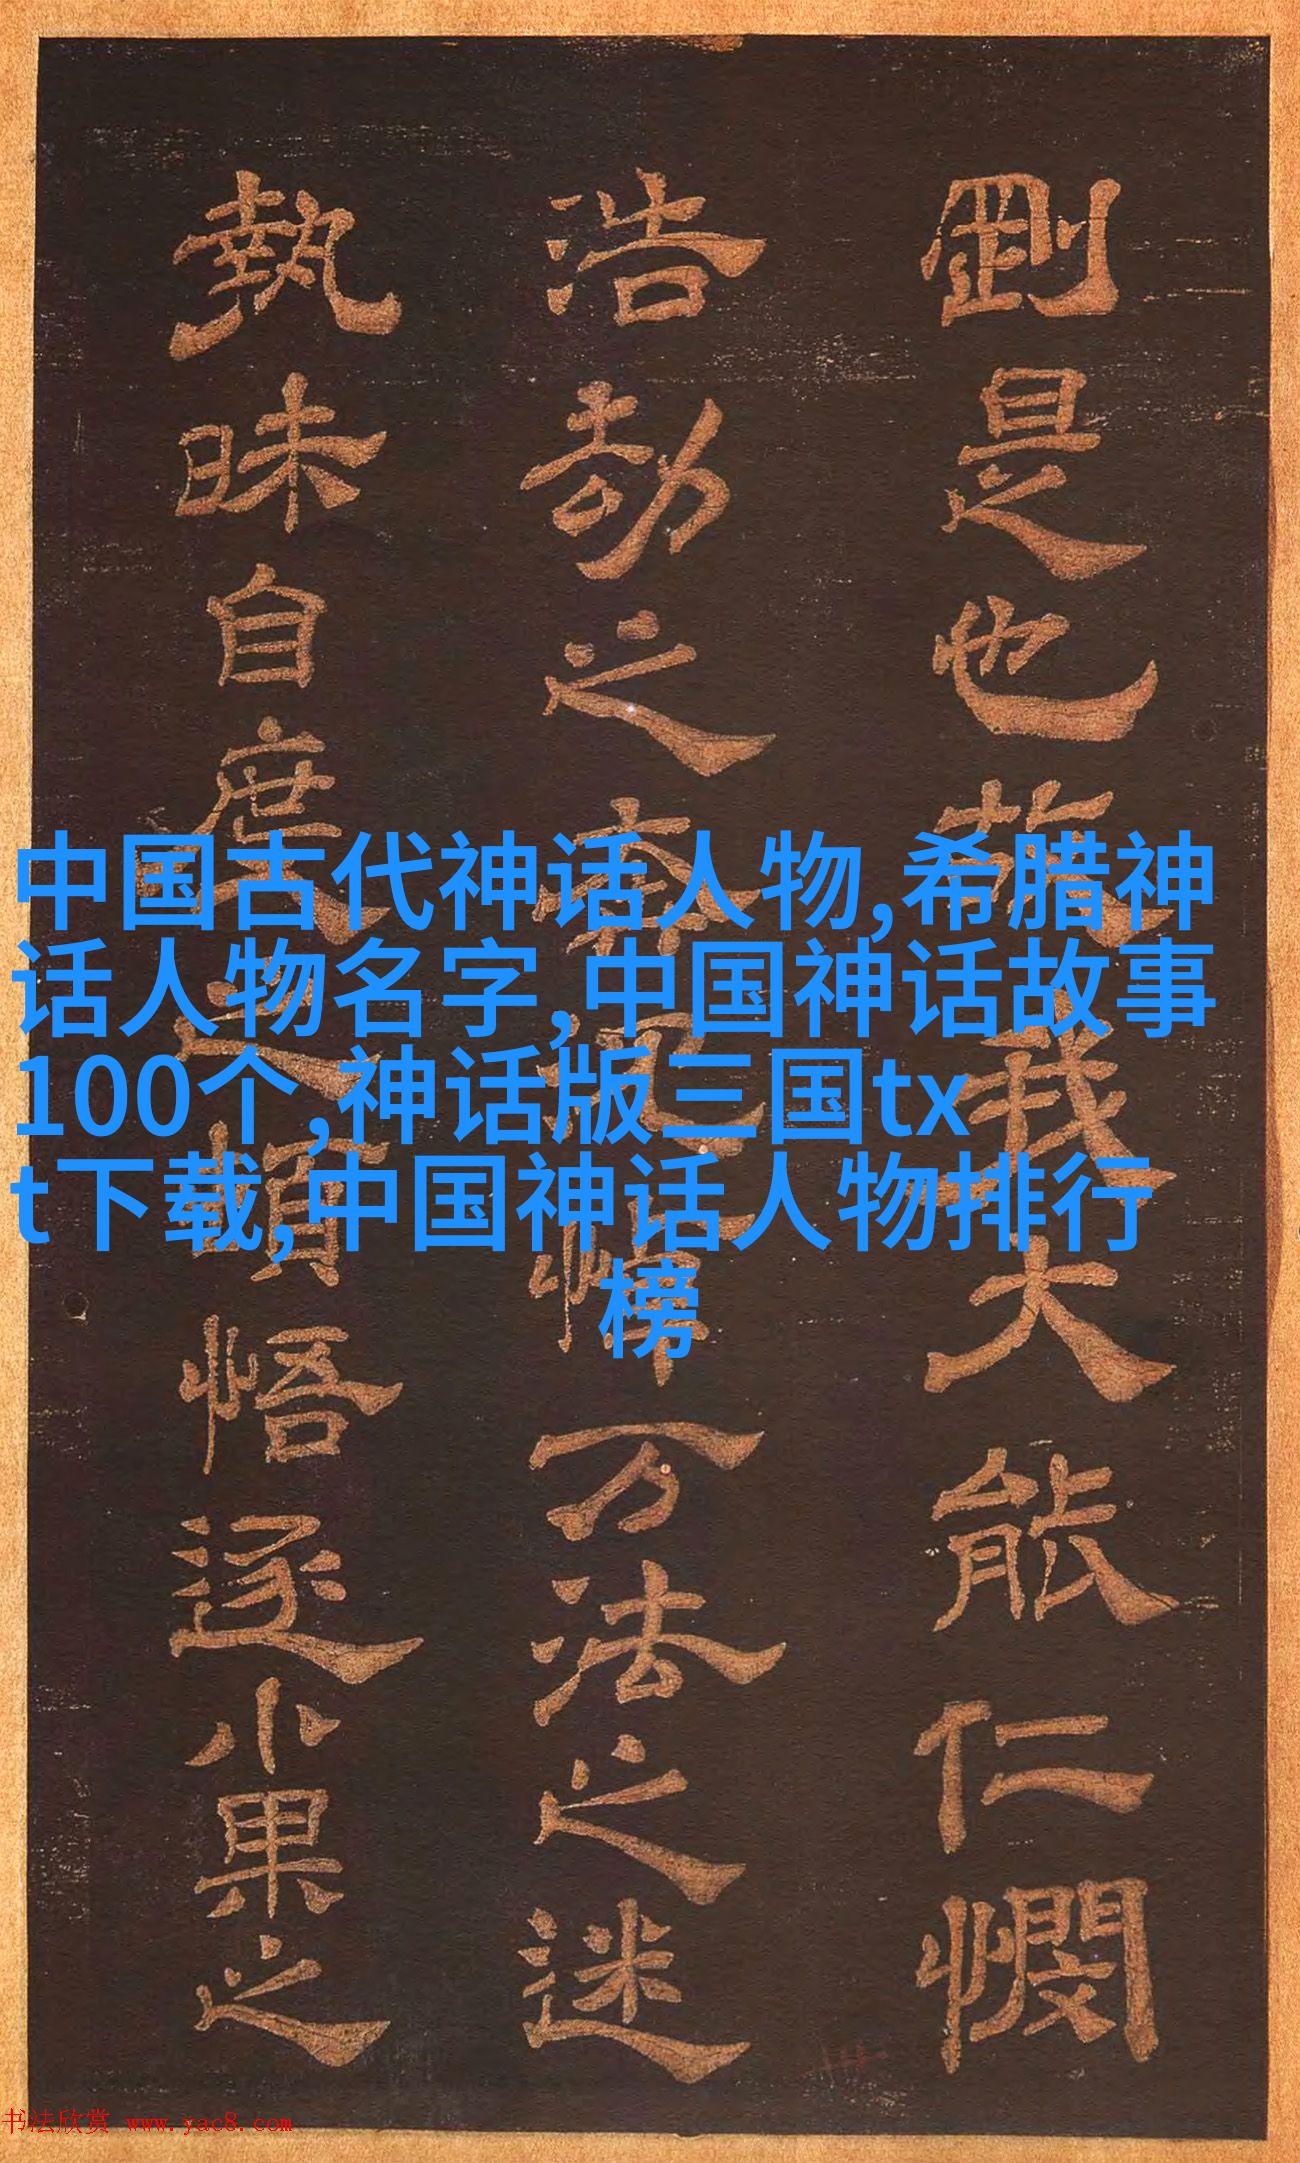 剛是也故我大能仁憫
浩劫之万法之迷
執昧自度之頓悟逐小果之
中国古代神话人物,希腊神
话人物名字,中国神话故事
100个,神话版三国tx
t下载,中国神话人物排行
榜
书法欣赏 www.yac8.com